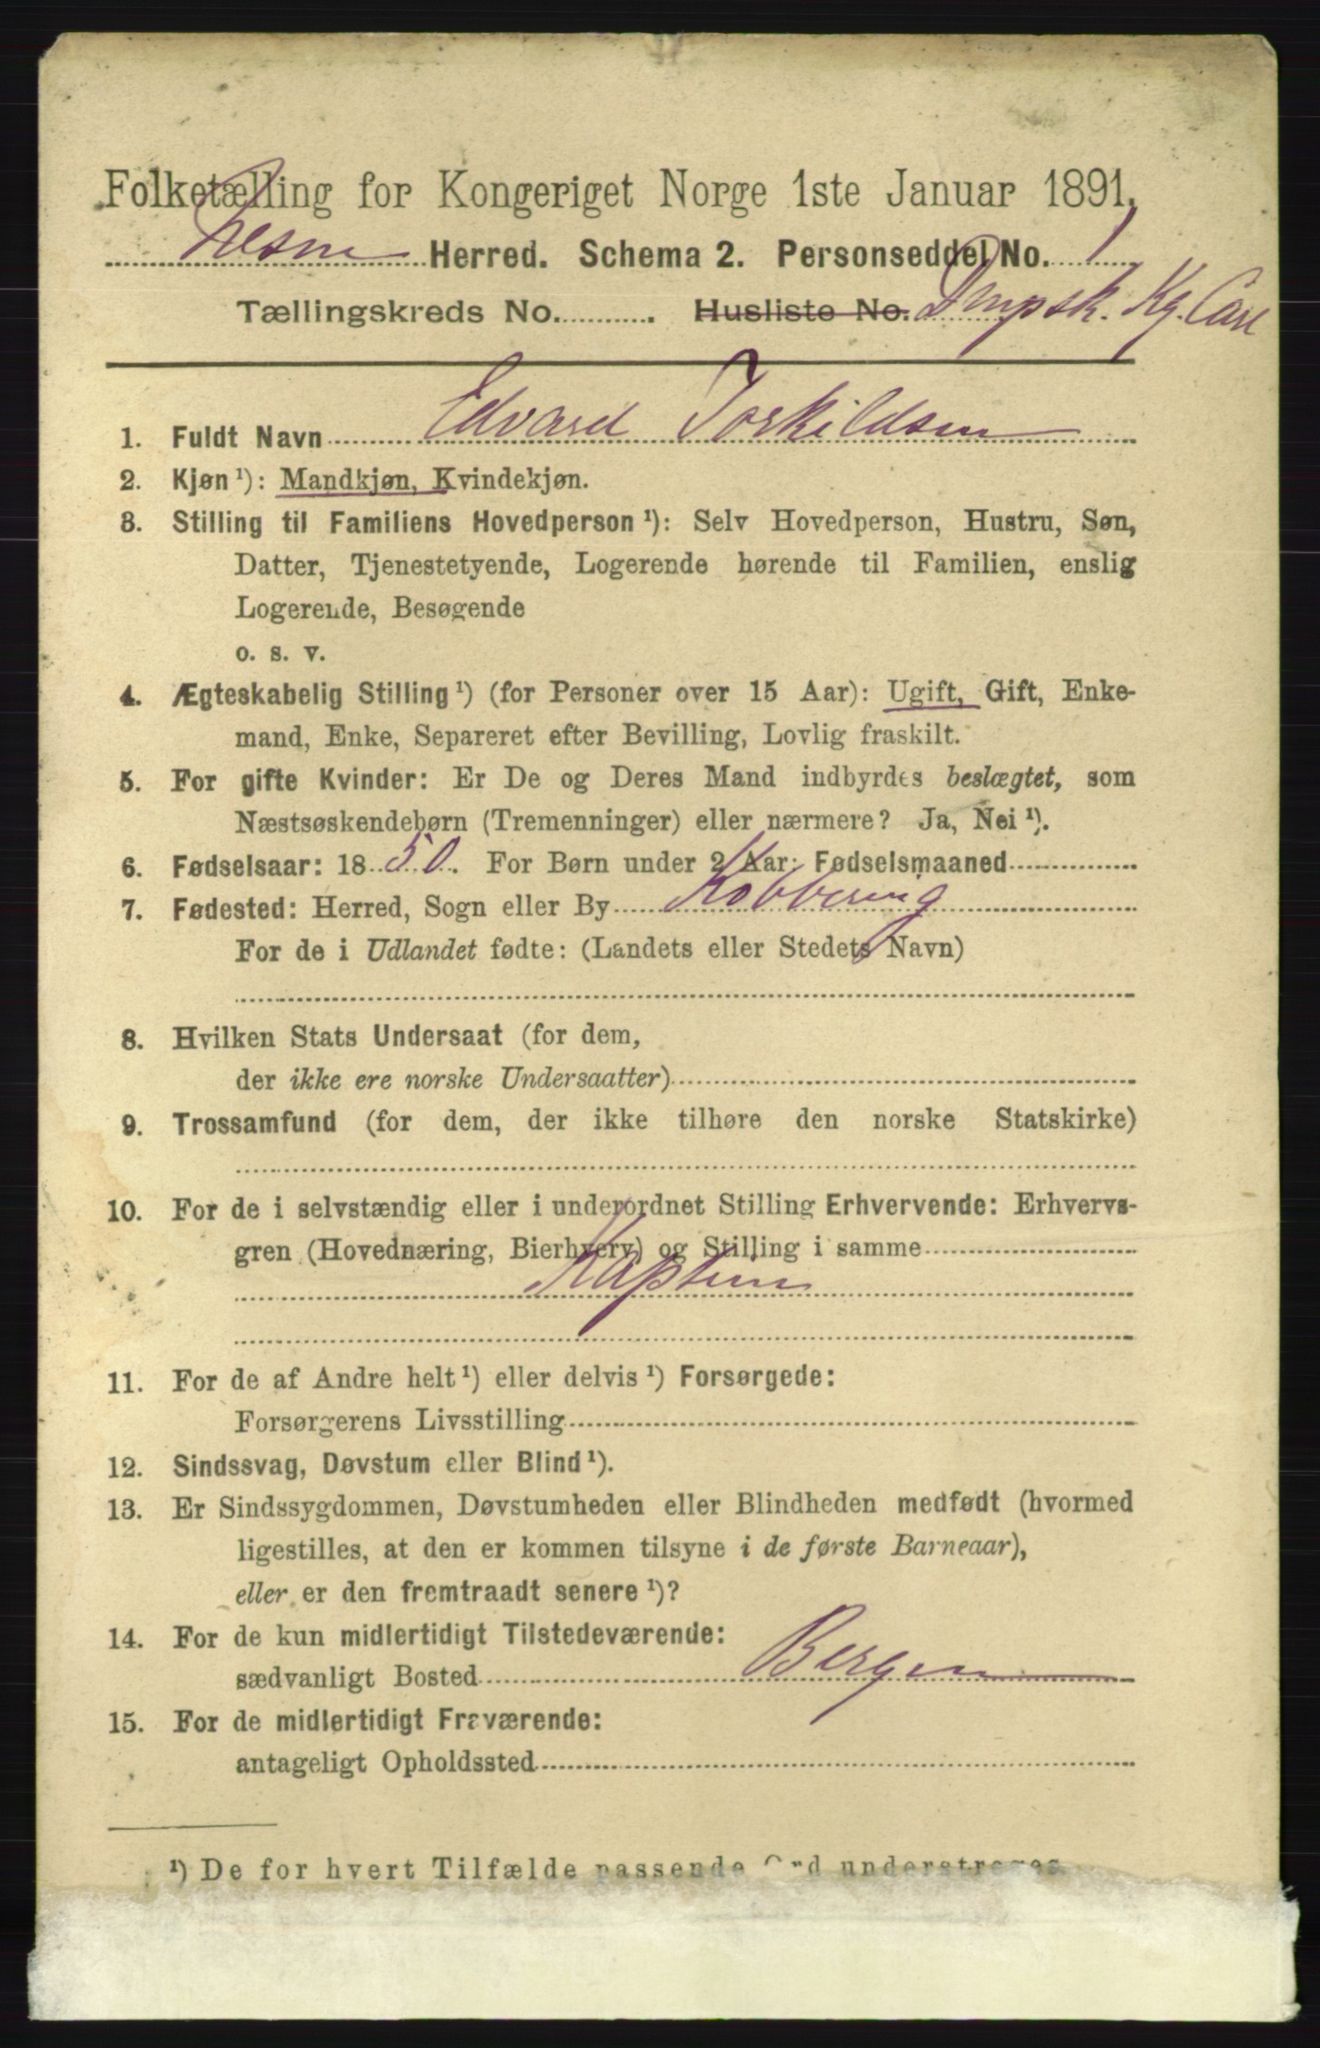 Folketælling for Kongeriget Norge 1ste Januar 1891.
Nesne Herred. Schema 2. Personseddel No. 1
Tællingskreds No. . Husliste No. Dmpsk. Kg. Carl
1. Fuldt Navn Edvard Torkildsen
2. Kjøn ¹): Mandkjøn, Kvindekjøn.
3. Stilling til Familiens Hovedperson ¹): Selv Hovedperson, Hustru, Søn,
Datter, Tjenestetyende, Logerende hørende til Familien, enslig
Logerende, Besøgende
o. s. v.
4. Ægteskabelig Stilling ¹) (for Personer over 15 Aar): Ugift, Gift, Enke-
mand, Enke, Separeret efter Bevilling, Lovlig fraskilt.
5. For gifte Kvinder: Er De og Deres Mand indbyrdes beslægtet, som
Næstsøskendebørn (Tremenninger) eller nærmere? Ja, Nei ¹).
6. Fødselsaar: 1850. For Børn under 2 Aar: Fødselsmaaned
7. Fødested: Herred, Sogn eller By Kobbervig
For de i Udlandet fødte: (Landets eller Stedets Navn)
8. Hvilken Stats Undersaat (for dem,
der ikke ere norske Undersaatter)
9. Trossamfund (for dem, der ikke tilhøre den norske Statskirke)
10. For de i selvstændig eller i underordnet Stilling Erhvervende: Erhvervs-
gren (Hovednæring, Bierhverv) og Stilling i samme
Kaptein
11. For de af Andre helt ¹) eller delvis ¹) Forsørgede:
Forsørgerens Livsstilling
12. Sindssvag, Døvstum eller Blind ¹).
13. Er Sindssygdommen, Døvstumheden eller Blindheden medfødt (hvormed
ligestilles, at den er kommen tilsyne i de første Barneaar),
eller er den fremtraadt senere ¹)?
14. For de kun midlertidigt Tilstedeværende:
sædvanligt Bosted Bergen
15. For de midlertidigt Fraværende:
antageligt Opholdssted
¹) De for hvert Tilfælde passende Ord understreges.